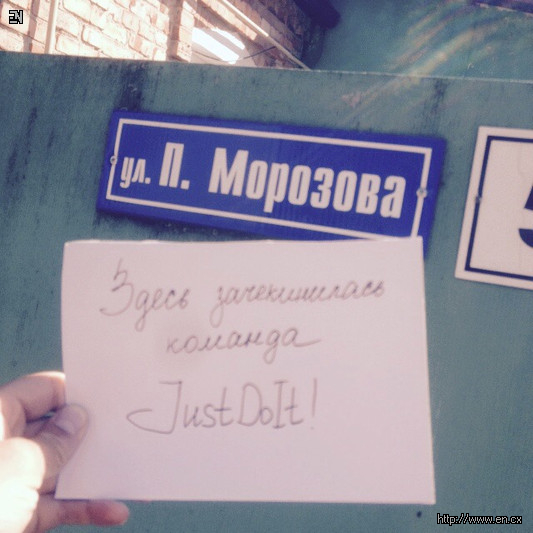 EN
ул. П. Морозова
Здесь зачекинилась
команда
JustDoIt!
http://www.en.cx